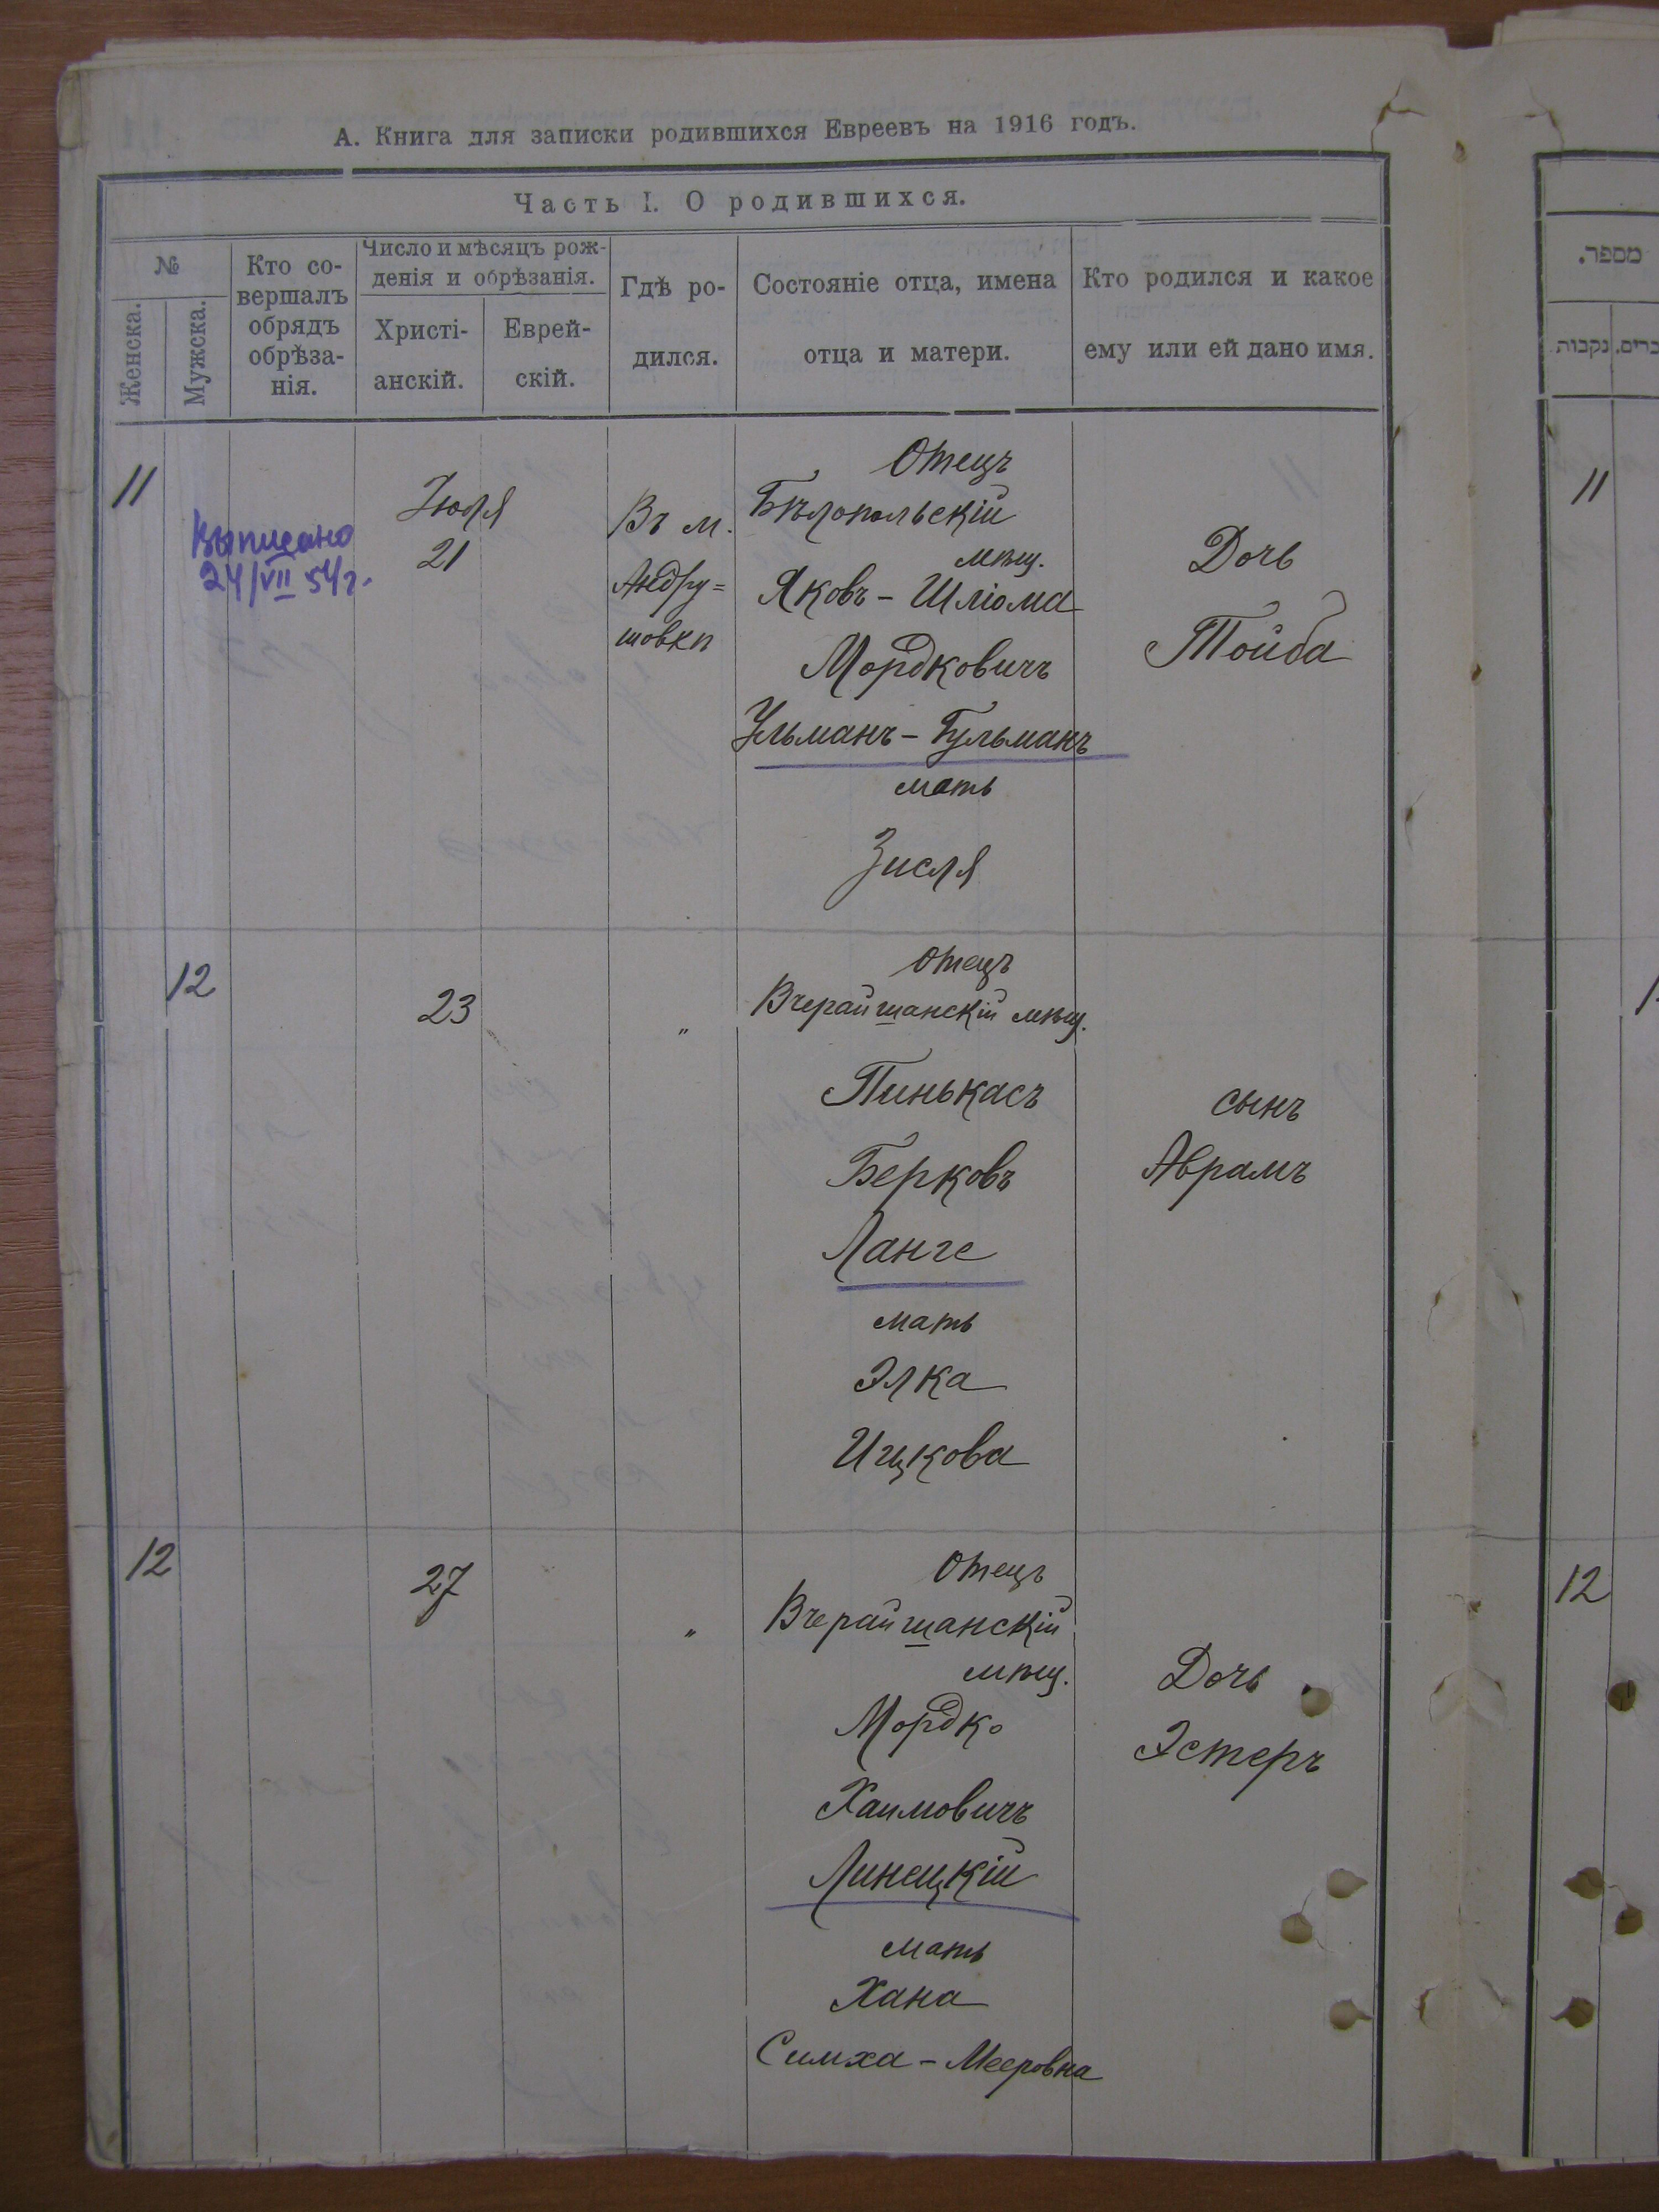 А. Книга для записки родившихся Евреевъ на 1916 годъ.
Часть I. О родившихся.
№
Женска.
Мужска.
Кто со-
вершалъ
обрядъ
обрѣза-
нія.
Число и мѣсяцъ рож-
денія и обрѣзанія.
Христі-
анскій.
Еврей-
скій.
Гдѣ ро-
дился.
Состояніе отца, имена
отца и матери.
Кто родился и какое
ему или ей дано имя.
מספר.
נקבות
11
Выписано
24/VII 54г.
Іюля
21
Въ м.
Андру=
шовкѣ
Отецъ
Бѣлопольскій
мѣщ.
Яковъ - Шліома
Мордковичъ
Ульманъ - Гульманъ
мать
Зисля
Дочь
Тойба
11
12
23
"
Отецъ
Вчерайшанскій мѣщ.
Пинькасъ
Берковъ
Ланге
мать
Элка
Ицкова
сынъ
Аврамъ
12
27
"
Отецъ
Вчерайшанскій
мѣщ.
Мордко
Хаимовичъ
Линецкій
мать
Хана
Симха - Мееровна
Дочь
Эстеръ
12